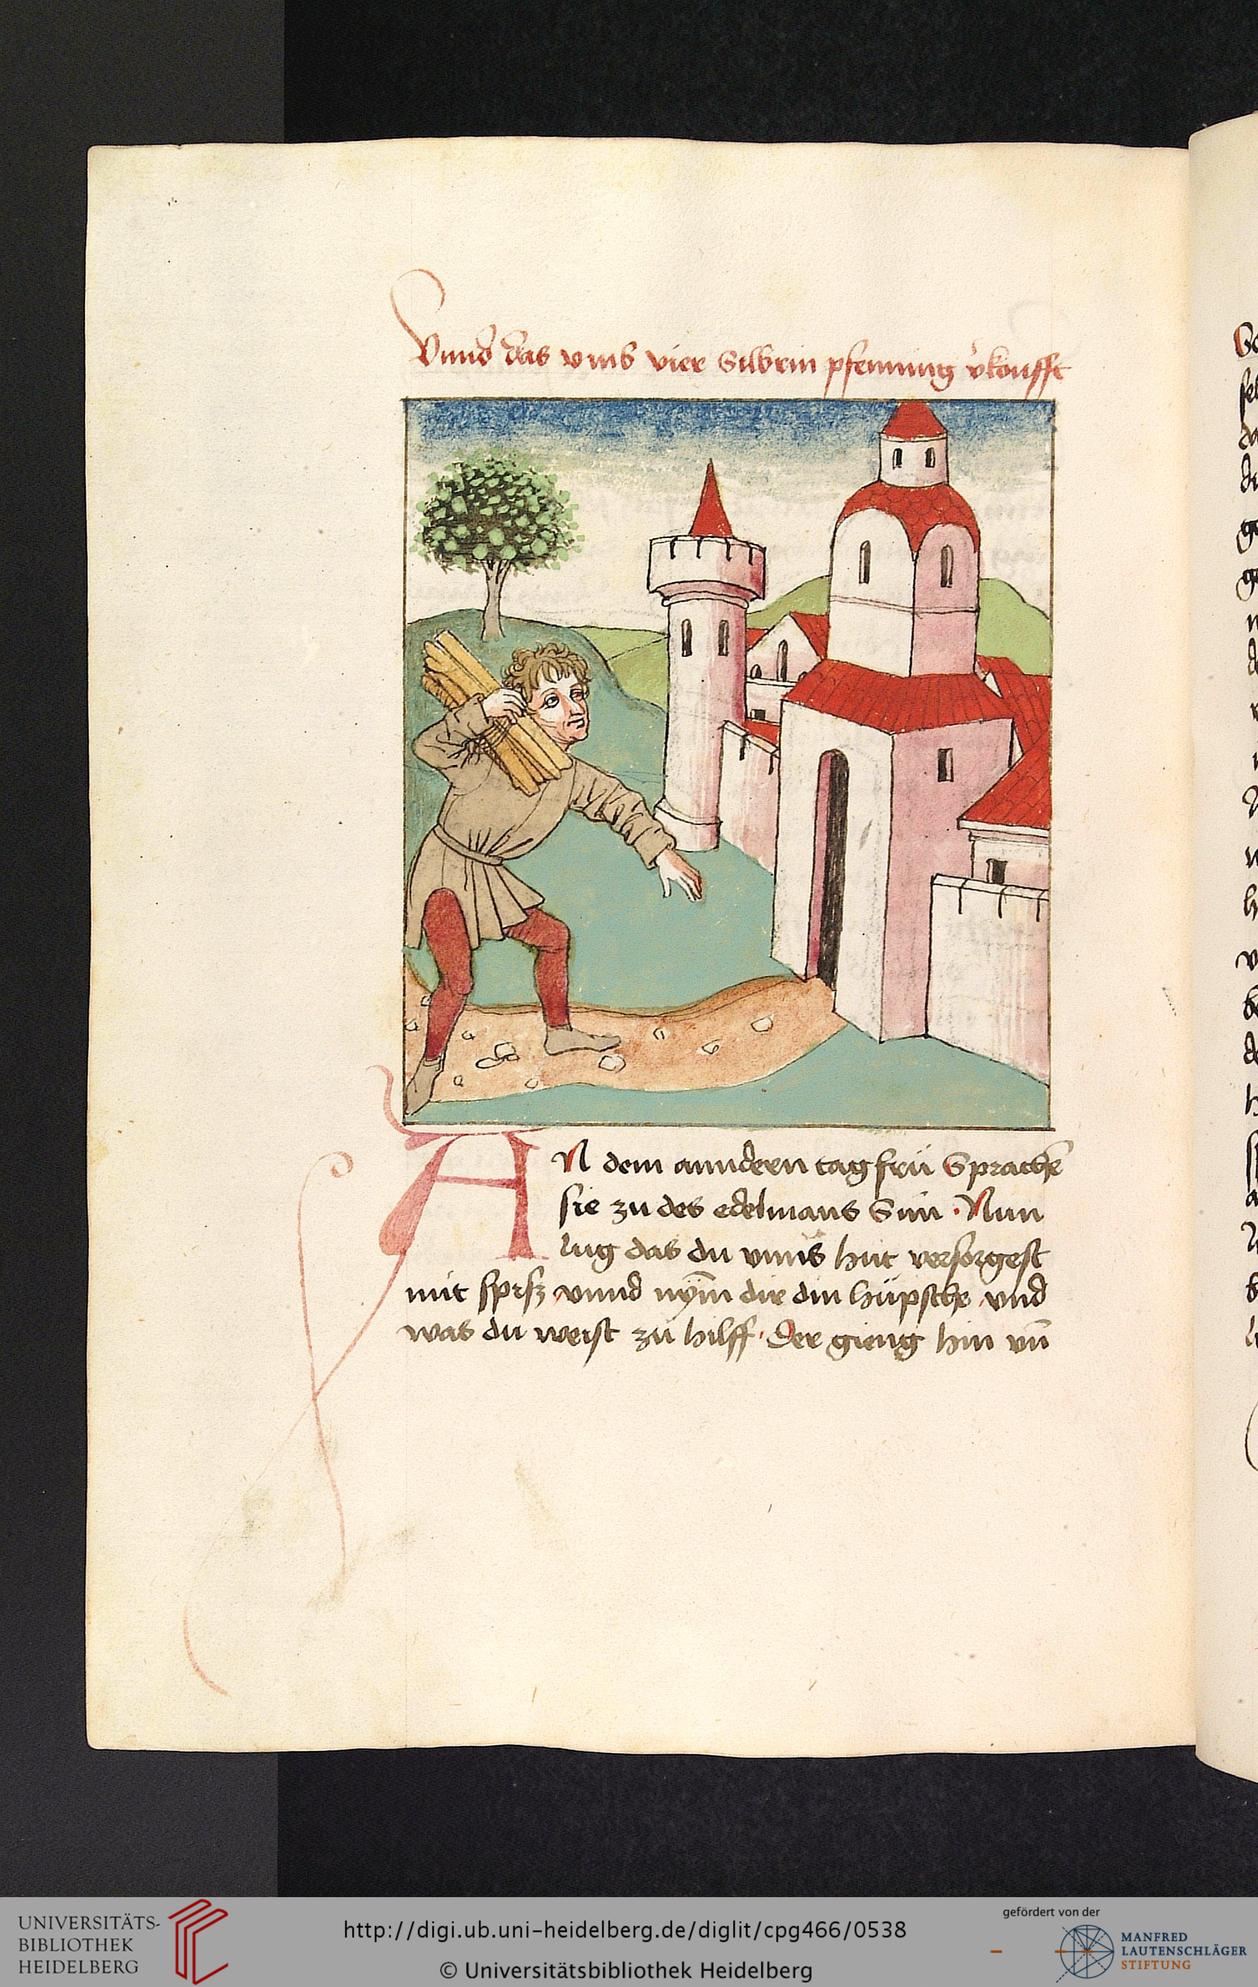 Vnnd das vmb vier silbrin pfenning v̓koufft
AN dem anndern tag frü Sprachen̄
sie zu des edelmans Sun · Nun
lug das du vnns hüt versorgest
mit spisz vnnd nÿm̄ dir din hüpsche vnd
was du weist zů hilff · Der gieng hin vn̄
UNIVERSITÄTS-
BIBLIOTHEK
HEIDELBERG
http://digi.ub.uni-heidelberg.de/diglit/cpg466/0538
© Universitätsbibliothek Heidelberg
gefördert von der
MANFRED
LAUTENSCHLÄGER
STIFTUNG